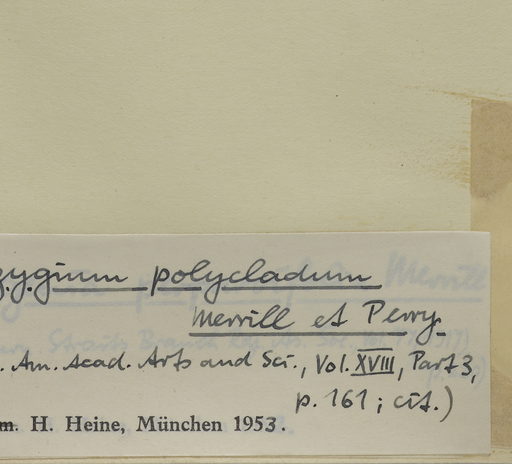 zygium polycladum
Merrill et Perry.
. Am. Acad. Arts and Sci., Vol. XVIII, Part 3,
p. 161 ; cit.)
m. H. Heine, München 1953.